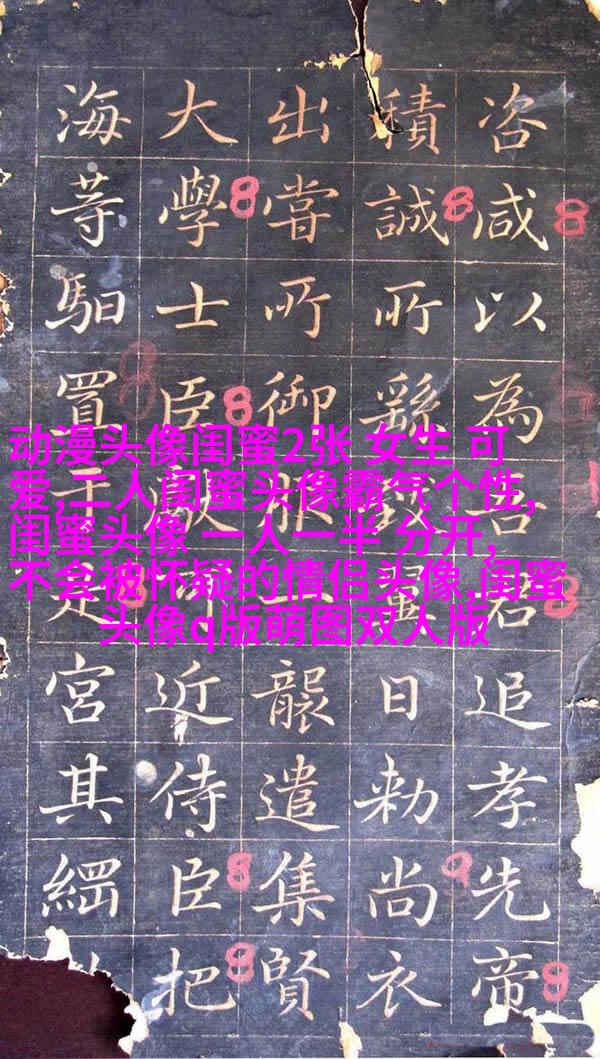 咨咸以為吾君追孝先帝
積誠所繇致日勑尚衣
出甞所御服一襲遣集賢
大學士臣獻可近侍臣把
海等馹置于是宮其
动漫头像闺蜜2张 女生 可
爱,二人闺蜜头像霸气个性,
闺蜜头像 一人一半 分开,
不会被怀疑的情侣头像,闺蜜
头像q版萌图双人版